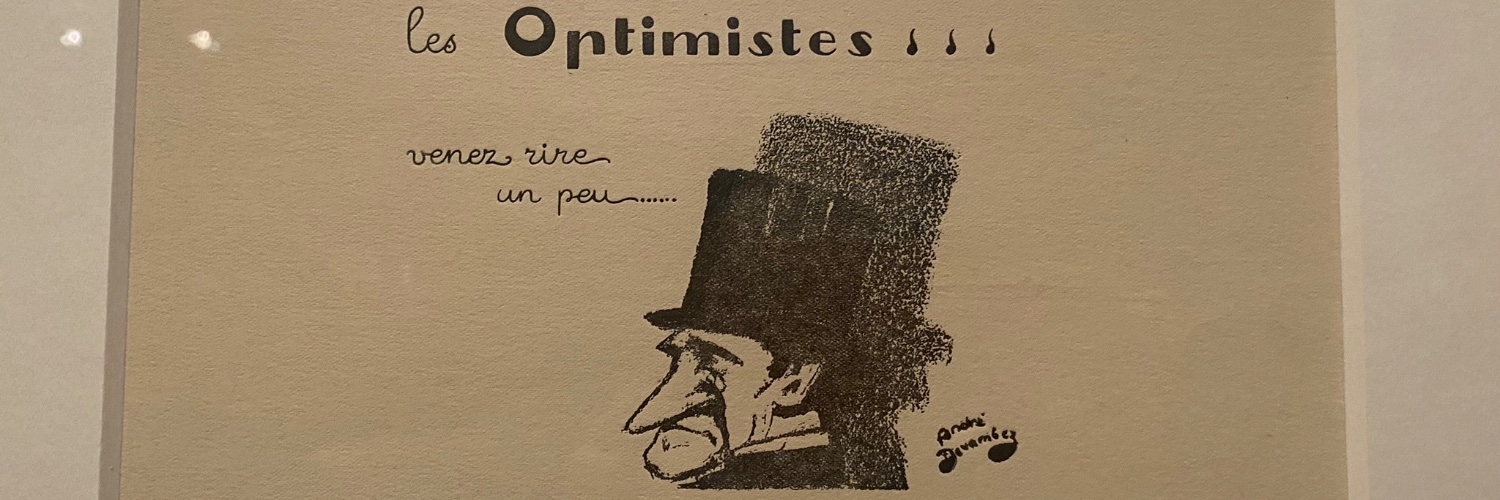 les Optimistes , , ,
venez rire
un peu......
André
Devambez